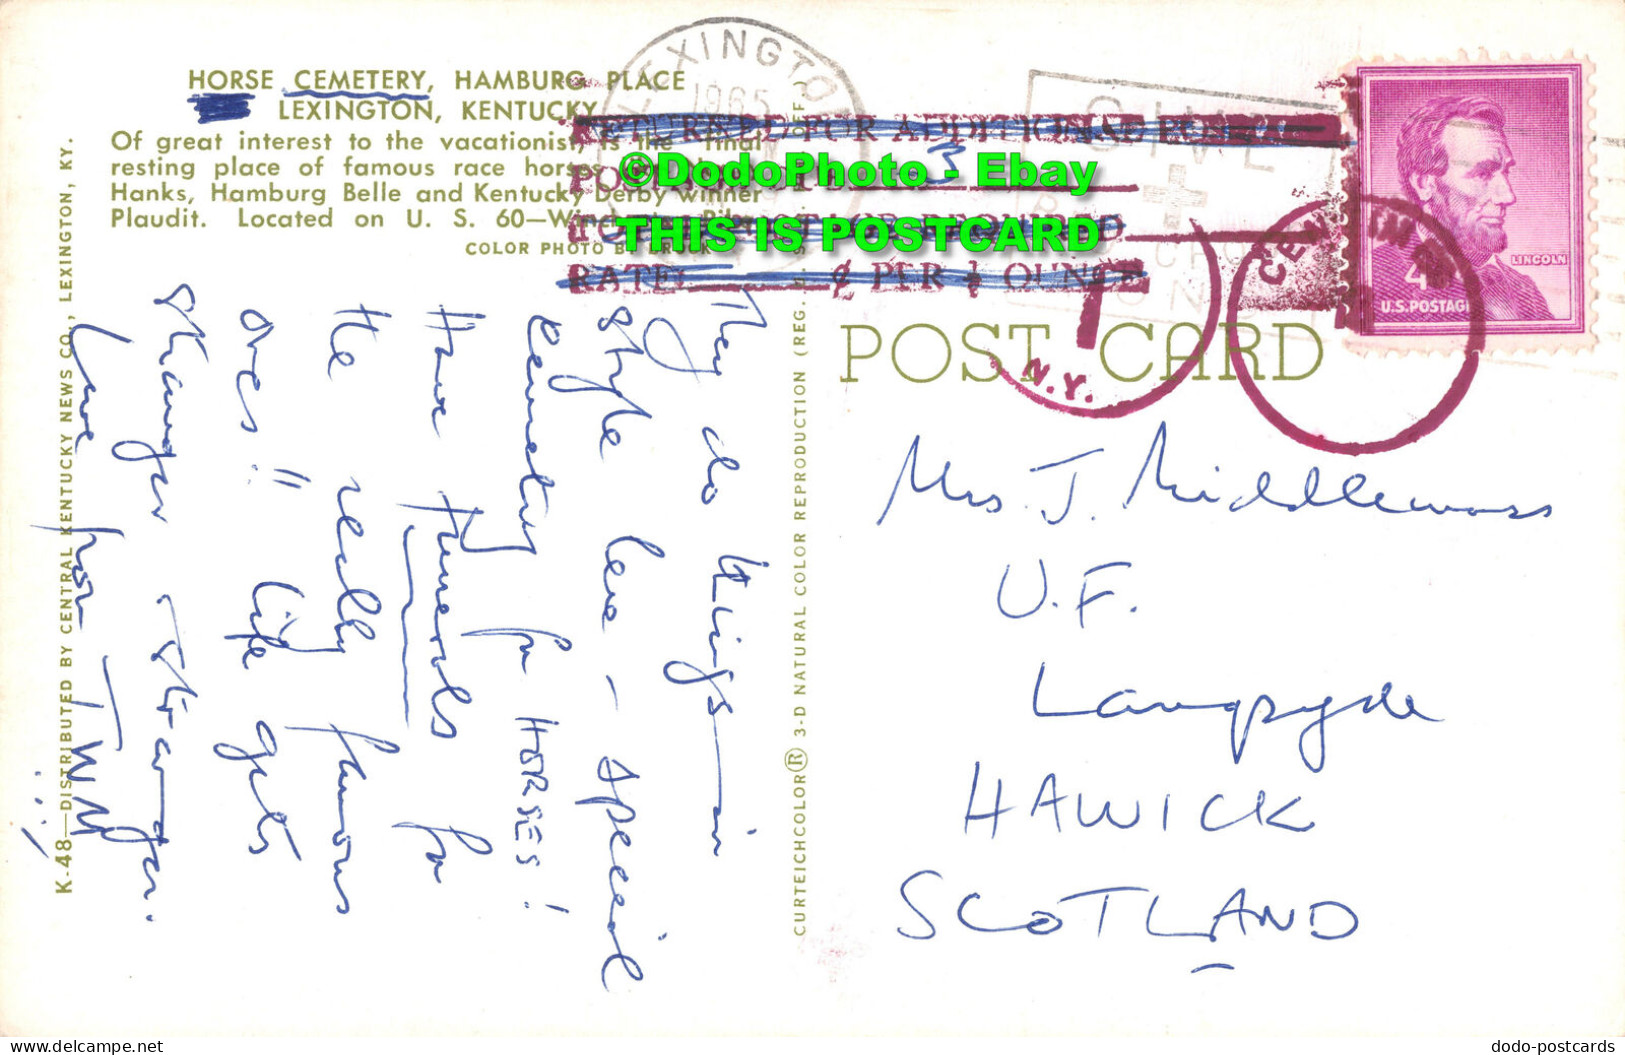 HORSE CEMETERY, HAMBURG PLACE
LEXINGTON, KENTUCKY
Of great interest to the vacationist, is the final
resting place of famous race horses
Hanks, Hamburg Belle and Kentucky Derby winner
Plaudit. Located on U. S. 60—
COLOR PHOTO BY
K-48—DISTRIBUTED BY CENTRAL KENTUCKY NEWS CO., LEXINGTON, KY.
They do things in
style here – special
cemetery for HORSES!
Have funerals for
the really famous
ones!! Life gets
stranger & stranger.
Love from JWM
CURTEICHCOLOR® 3-D NATURAL COLOR REPRODUCTION (REG. U. S.
LEXINGTON
1965
RETURNED FOR ADDITIONAL
RATE: ¢ PER ½ OUNCE
CIVIL
©DodoPhoto - Ebay
THIS IS POSTCARD
T
N.Y.
CENTIMES
LINCOLN
4¢
U.S. POSTAGE
POST CARD
Mrs J. Middlemass
U.F.
Langpyde
HAWICK
SCOTLAND
dodo-postcards
www.delcampe.net